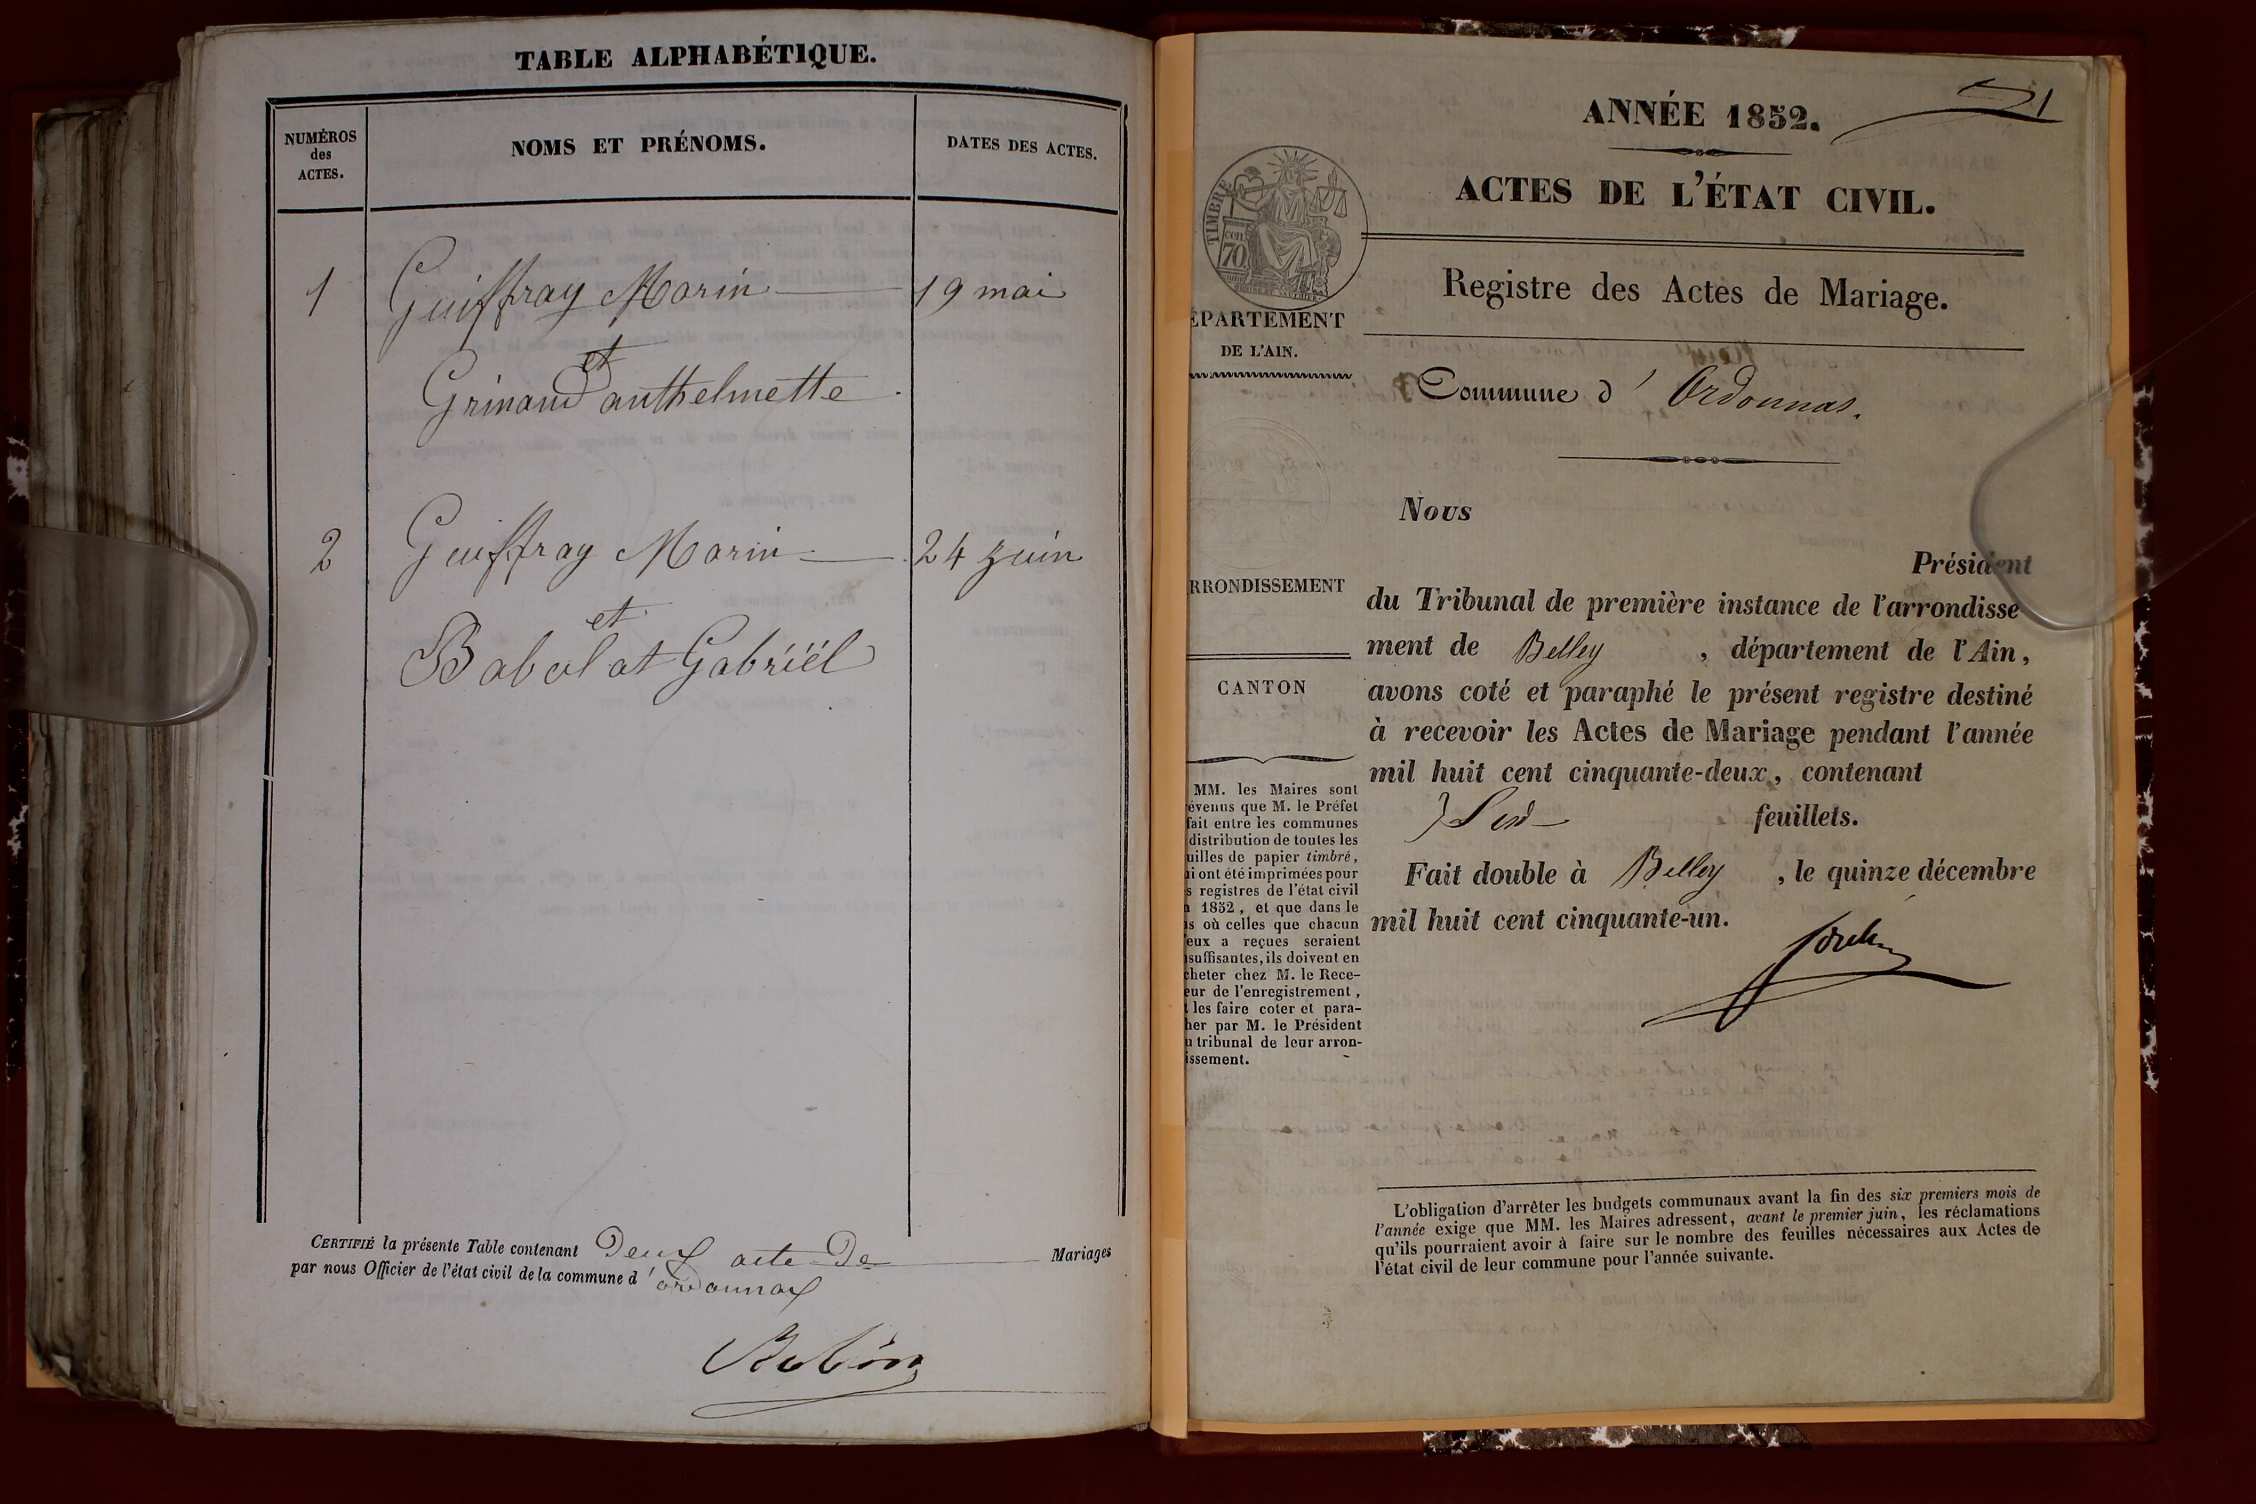 TABLE ALPHABÉTIQUE.
NUMÉROS
des
ACTES.
NOMS ET PRÉNOMS.
DATES DES ACTES.
1 Guiffray Marin 19 mai
et
Grinand anthelmette
2 Guiffray Marin 24 juin
et
Babolat Gabriël
CERTIFIÉ la présente Table contenant Deux acte De Mariages
par nous Officier de l'état civil de la commune d'ordonnax
Robin
1
ANNÉE 1852.
ACTES DE L'ÉTAT CIVIL.
TIMBRE
70
Registre des Actes de Mariage.
ÉPARTEMENT
DE L'AIN.
Commune d'Ordonnas.
Nous
Président
du Tribunal de première instance de l'arrondisse
ment de Belley, département de l'Ain,
avons coté et paraphé le présent registre destiné
à recevoir les Actes de Mariage pendant l'année
mil huit cent cinquante-deux, contenant
feuillets.
Fait double à Belley, le quinze décembre
mil huit cent cinquante-un.
RRONDISSEMENT
CANTON
MM. les Maires sont
évenus que M. le Préfet
fait entre les communes
distribution de toutes les
uilles de papier timbré,
i ont été imprimées pour
s registres de l'état civil
1852, et que dans le
s où celles que chacun
eux a reçues seraient
suffisantes, ils doivent en
cheter chez M. le Rece-
eur de l'enregistrement,
les faire coter et para-
her par M. le Président
u tribunal de leur arron-
issement.
L'obligation d'arrêter les budgets communaux avant la fin des six premiers mois de
l'année exige que MM. les Maires adressent, avant le premier juin, les réclamations
qu'ils pourraient avoir à faire sur le nombre des feuilles nécessaires aux Actes de
l'état civil de leur commune pour l'année suivante.